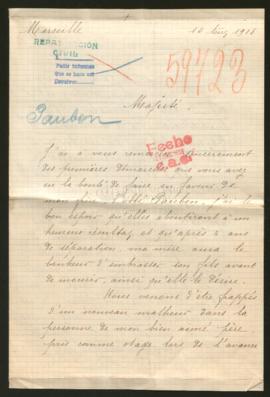 Marseille 10 1918
REPATRIACION
CIVIL
Pedir informes
59723
Majesté,
Paubon
Fecho
J'ai à vous sincèrement
des premières démarches que vous avez
eu la bonté de faire en faveur de
mon Paubon, j'ai le
bon espoir qu'elles aboutiront à un
heureux résultat et qu'après 4 ans
de séparation, ma mère aura le
bonheur d'embrasser son fils avant
de mourir, ainsi qu'elle le désire.
Nous venons d'être frappés
d'un nouveau malheur dans la
personne de mon bien aimé père
pris comme otage lors de l'avance